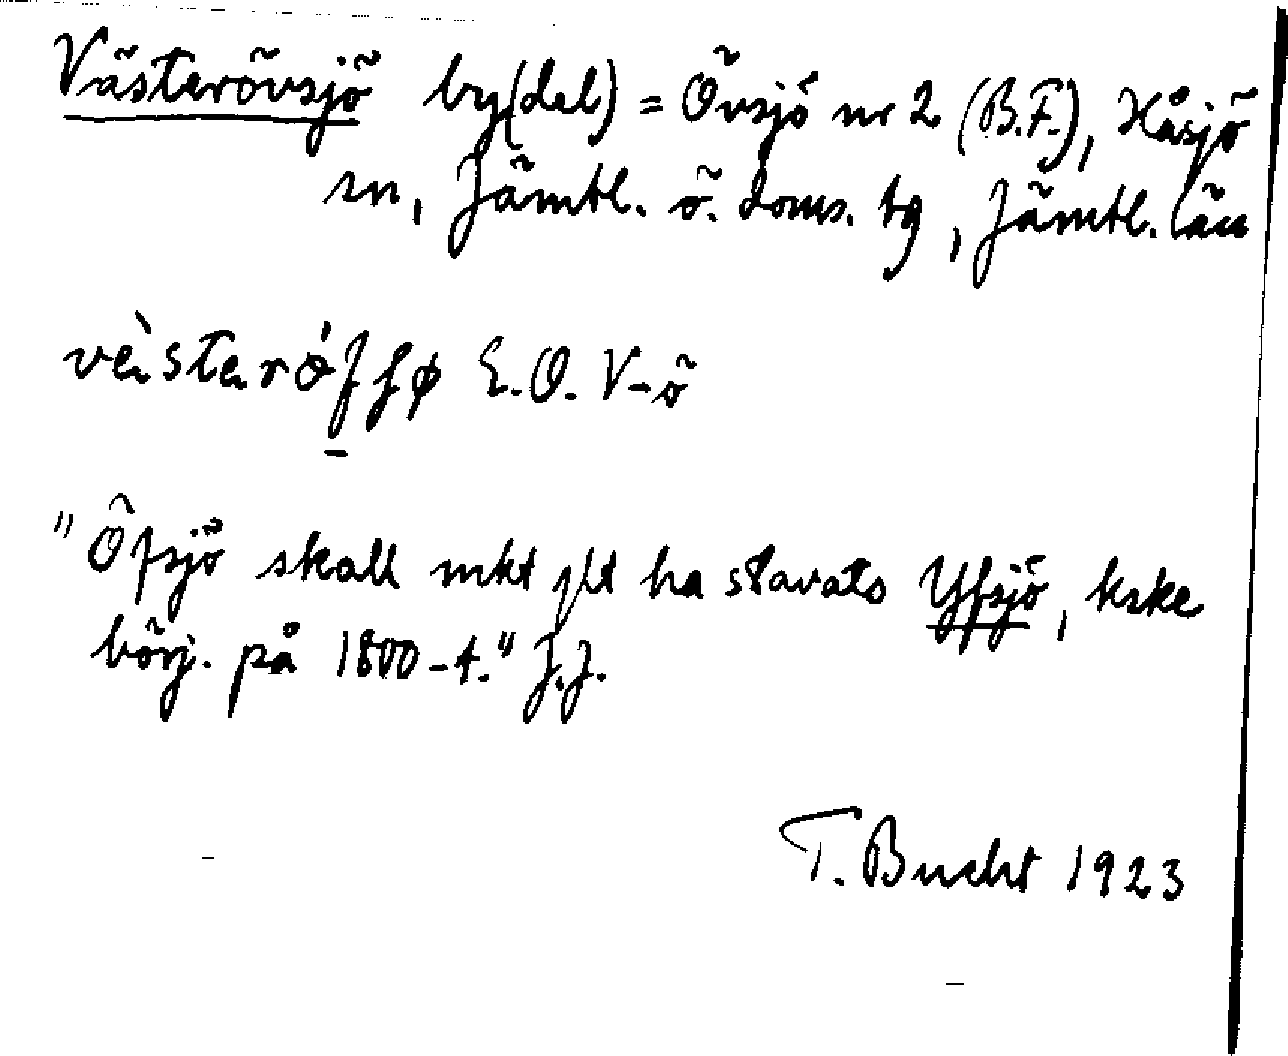 Västerövsjö by(del) = Övsjö nr 2 (B.F.), Håsjö
sn, Jämtl. ö. doms. tg, Jämtl. län
E.O. V-ö
"Öfsjö skall mkt ha stavats Yfsjö, kske
börj. på 1800-t." J.J.
T. Bucht 1923